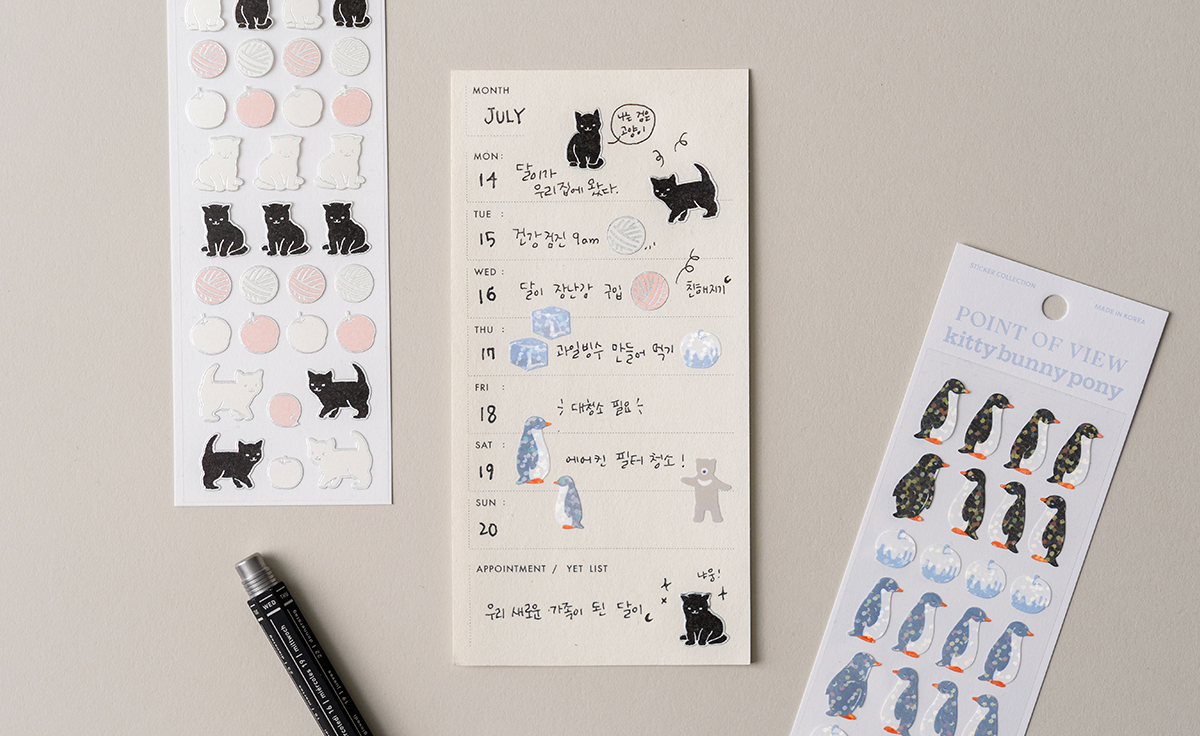 MONTH
JULY
나는 검은
고양이
MON:
14
달이가
우리집에 왔다.
TUE :
15
건강검진 9am
WED :
16
달이 장난감 구입
친해지기
THU :
17
과일빙수 만들어 먹기
FRI :
18
대청소 필요
SAT :
19
에어컨 필터 청소!
SUN :
20
APPOINTMENT / YET LIST
냐옹!
우리 새로운 가족이 된 달이
STICKER COLLECTION
MADE IN KOREA
POINT OF VIEW
kittybunnypony
WED
THU
miércoles 19 | mittwoch